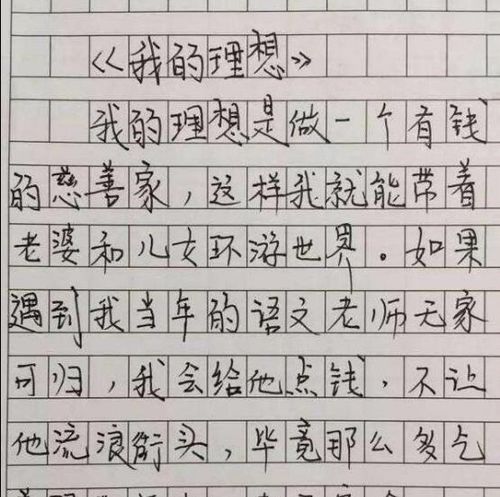 《我的理想》
我的理想是做一个有钱
的慈善家,这样我就能带着
老婆和儿女环游世界。如果
遇到我当年的语文老师无家
可归,我会给他点钱,不让
他流浪街头,毕竟那么多乞